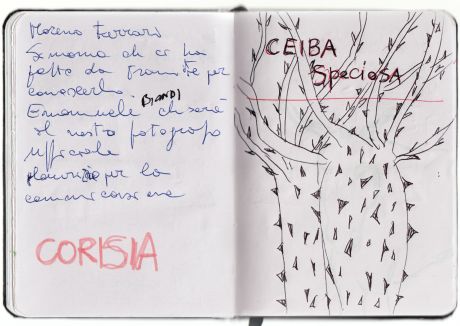 Simona che ci ha
fatto da tramite per
conoscerlo.
BIONDI
Emanuele che sarà
il nostro fotografo
ufficiale
Maurizio per la
comunicazione
CORISIA
CEIBA
SpecioSA